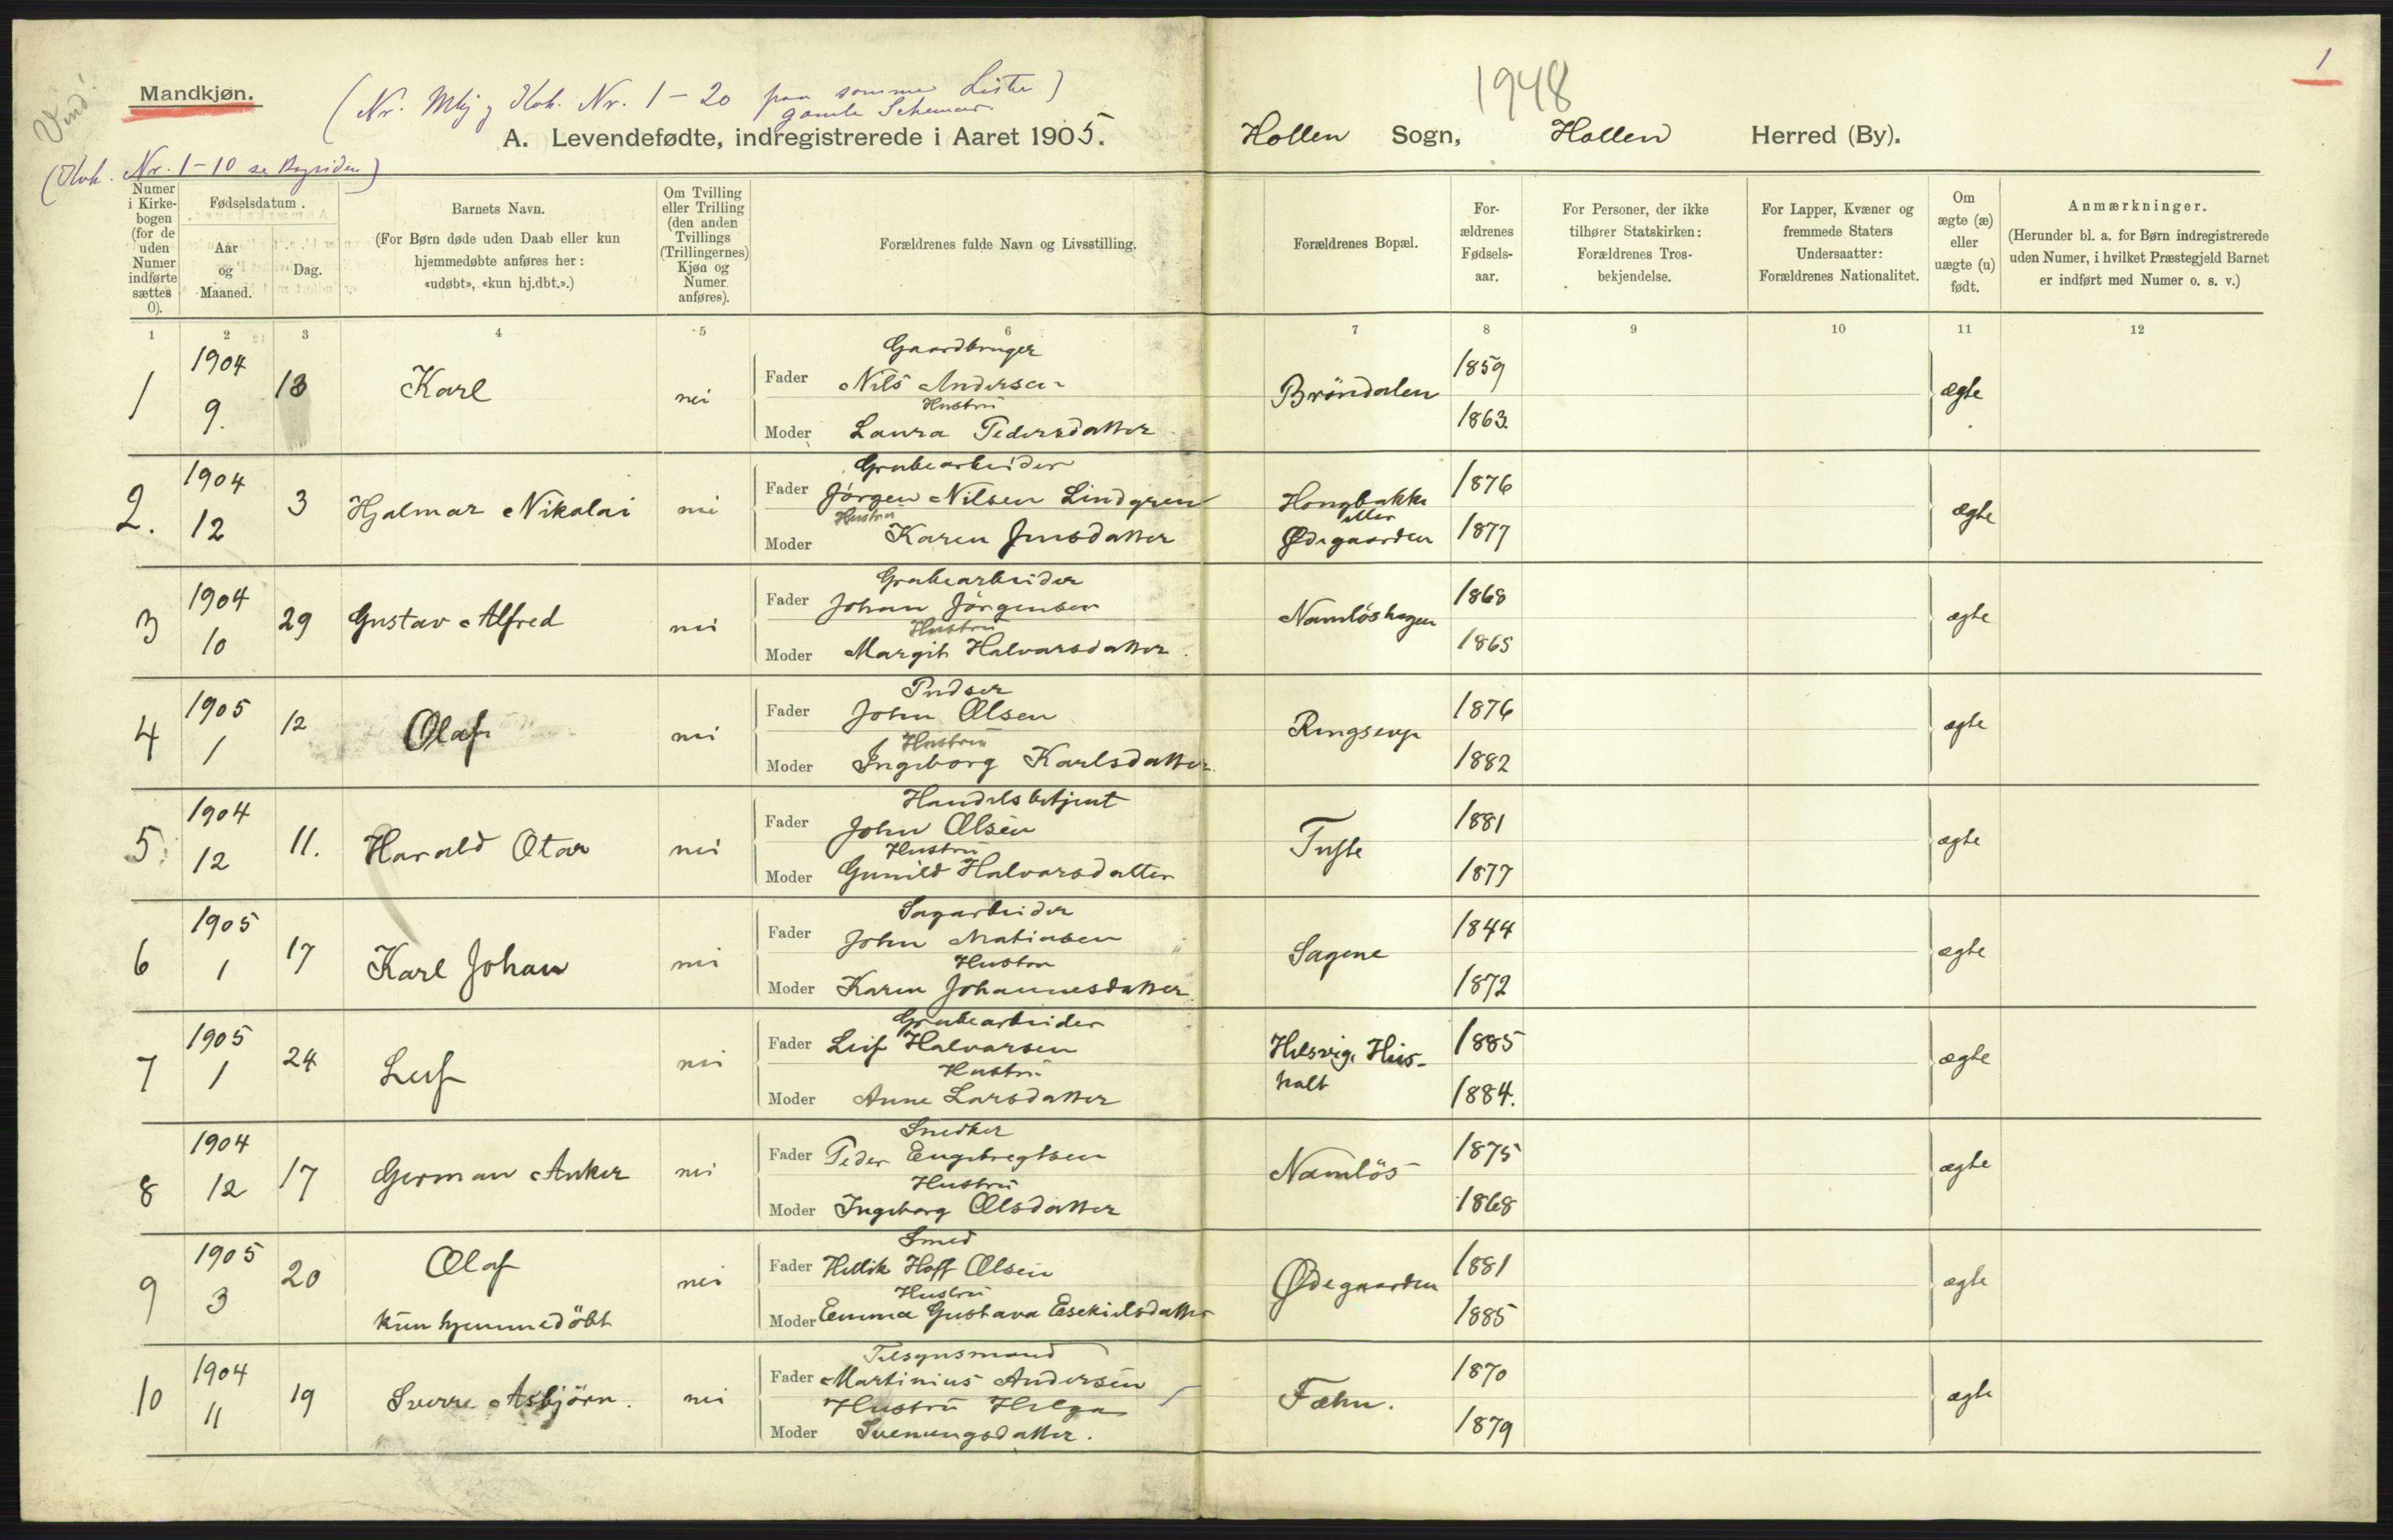 1948
1
Vend!
Mandkjøn.
(Nr. Mkj og Kvk. Nr. 1 - 20 paa samme Liste)
gamle Schemaer
A. Levendefødte, indregistrerede i Aaret 1905.
Hollen Sogn, Hollen Herred (By).
(Kvk. Nr. 1 - 10 se Bagsiden)
Numer i Kirkebogen (for de uden Numer indførte sættes 0).
Fødselsdatum.
Aar og Maaned.
Dag.
Barnets Navn.
(For Børn døde uden Daab eller kun hjemmedøbte anføres her: «udøbt», «kun hj.dbt.».)
Om Tvilling eller Trilling (den anden Tvillings (Trillingernes) Kjøn og Numer anføres).
Forældrenes fulde Navn og Livsstilling.
Forældrenes Bopæl.
For-ældrenes Fødsels-aar.
For Personer, der ikke tilhører Statskirken: Forældrenes Tros-bekjendelse.
For Lapper, Kvæner og fremmede Staters Undersaatter: Forældrenes Nationalitet.
Om ægte (æ) eller uægte (u) født.
Anmærkninger.
(Herunder bl. a. for Børn indregistrerede uden Numer, i hvilket Præstegjeld Barnet er indført med Numer o. s. v.)
1 2 3 4 5 6 7 8 9 10 11 12
1 1904 9. 13 Karl nei
Gaardbruger
Fader Nils Andersen
Hustru
Moder Laura Pedersdatter
Bröndalen 1859 1863. ægte
2. 1904 12 3 Hjalmar Nikolai nei
Grubearbeider
Fader Jörgen Nilsen Lindgren
Hustru
Moder Karen Jensdatter
Hongbakke eller Ødegaarden 1876 1877 ægte
3 1904 10 29 Gustav Alfred nei
Grubearbeider
Fader Johan Jörgensen
Hustru
Moder Margit Halvorsdatter.
Namlöshagen 1868 1865 ægte
4 1905 1 12 Olaf nei
Pudser
Fader John Olsen
Hustru
Moder Ingeborg Karlsdatter.
Ringsevje 1876 1882 ægte
5. 1904 12 11. Harald Otar nei
Handelsbetjent
Fader John Olsen
Hustru
Moder Gunild Halvorsdatter
Tufte 1881 1877 ægte
6 1905 1 17 Karl Johan nei
Sagarbeider
Fader John Matiasen
Hustru
Moder Karen Johannesdatter
Sagene 1844 1872 ægte
7 1905 1 24 Leif nei
Grubearbeider
Fader Leif Halvorsen
Hustru
Moder Anne Larsdatter
1885 1884. ægte
8 1904 12 17 German Anker nei
Snedker
Fader Peder Engebregtsen
Hustru
Moder Ingeborg Olsdatter
Namlös 1875 1868 ægte
9 1905 3 20 Olaf nei
kun hjemmedöbt
Smed
Fader Hellik Hoff Olsen
Hustru
Moder Emma Gustava Esekielsdatter
Ødegaarden 1881 1885 ægte
10 1904 11 19 Sverre Asbjörn. nei
Tilsynsmand
Fader Martinius Andersen
Hustru Helga
Moder Svenungsdatter.
Fæhn. 1870 1879 ægte